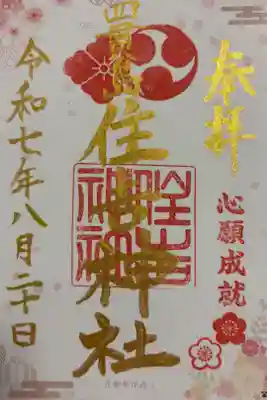 奉拝
心願成就
住吉神社
住吉神社
令和七年八月二十日